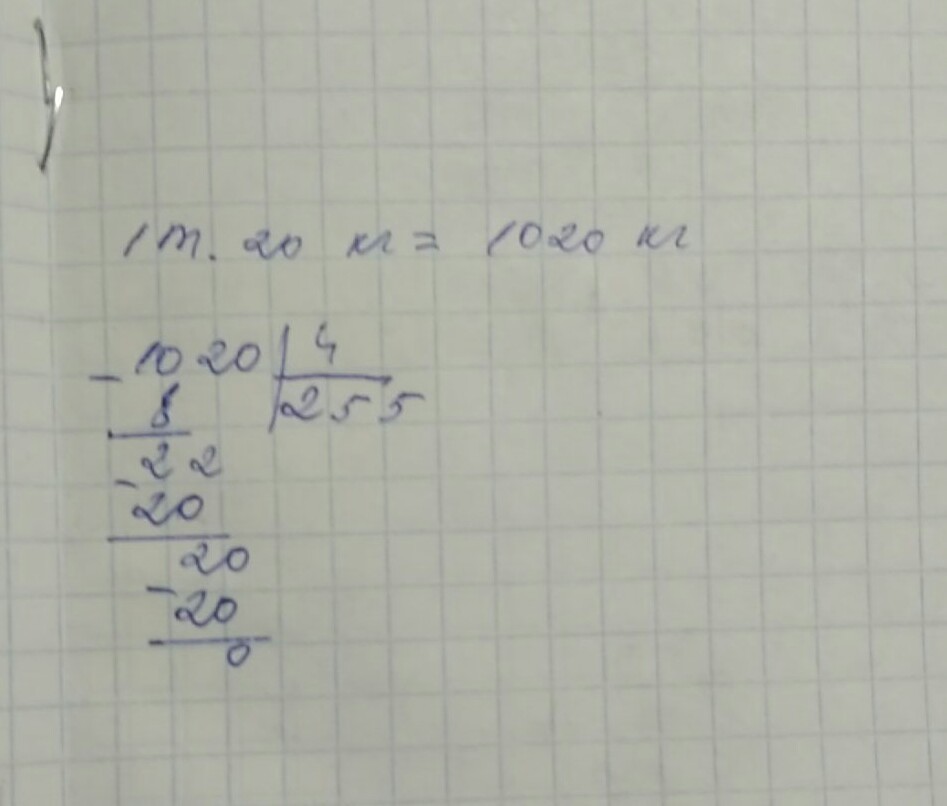 1 т. 20 кг = 1020 кг
- 1020 | 4
8 | 255
- 22
20
20
- 20
0